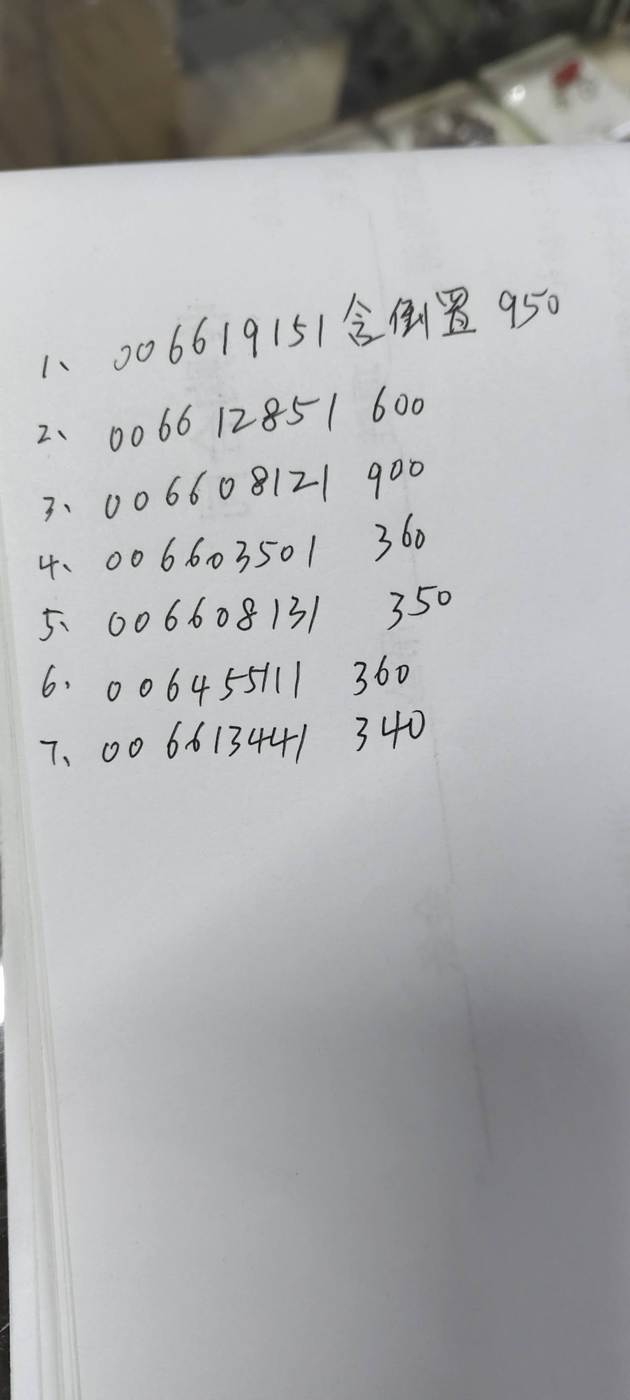 1、006619151含倒置 950
2、006612851 600
3、006608121 900
4、006603501 360
5、006608131 350
6、006455111 360
7、006613441 340